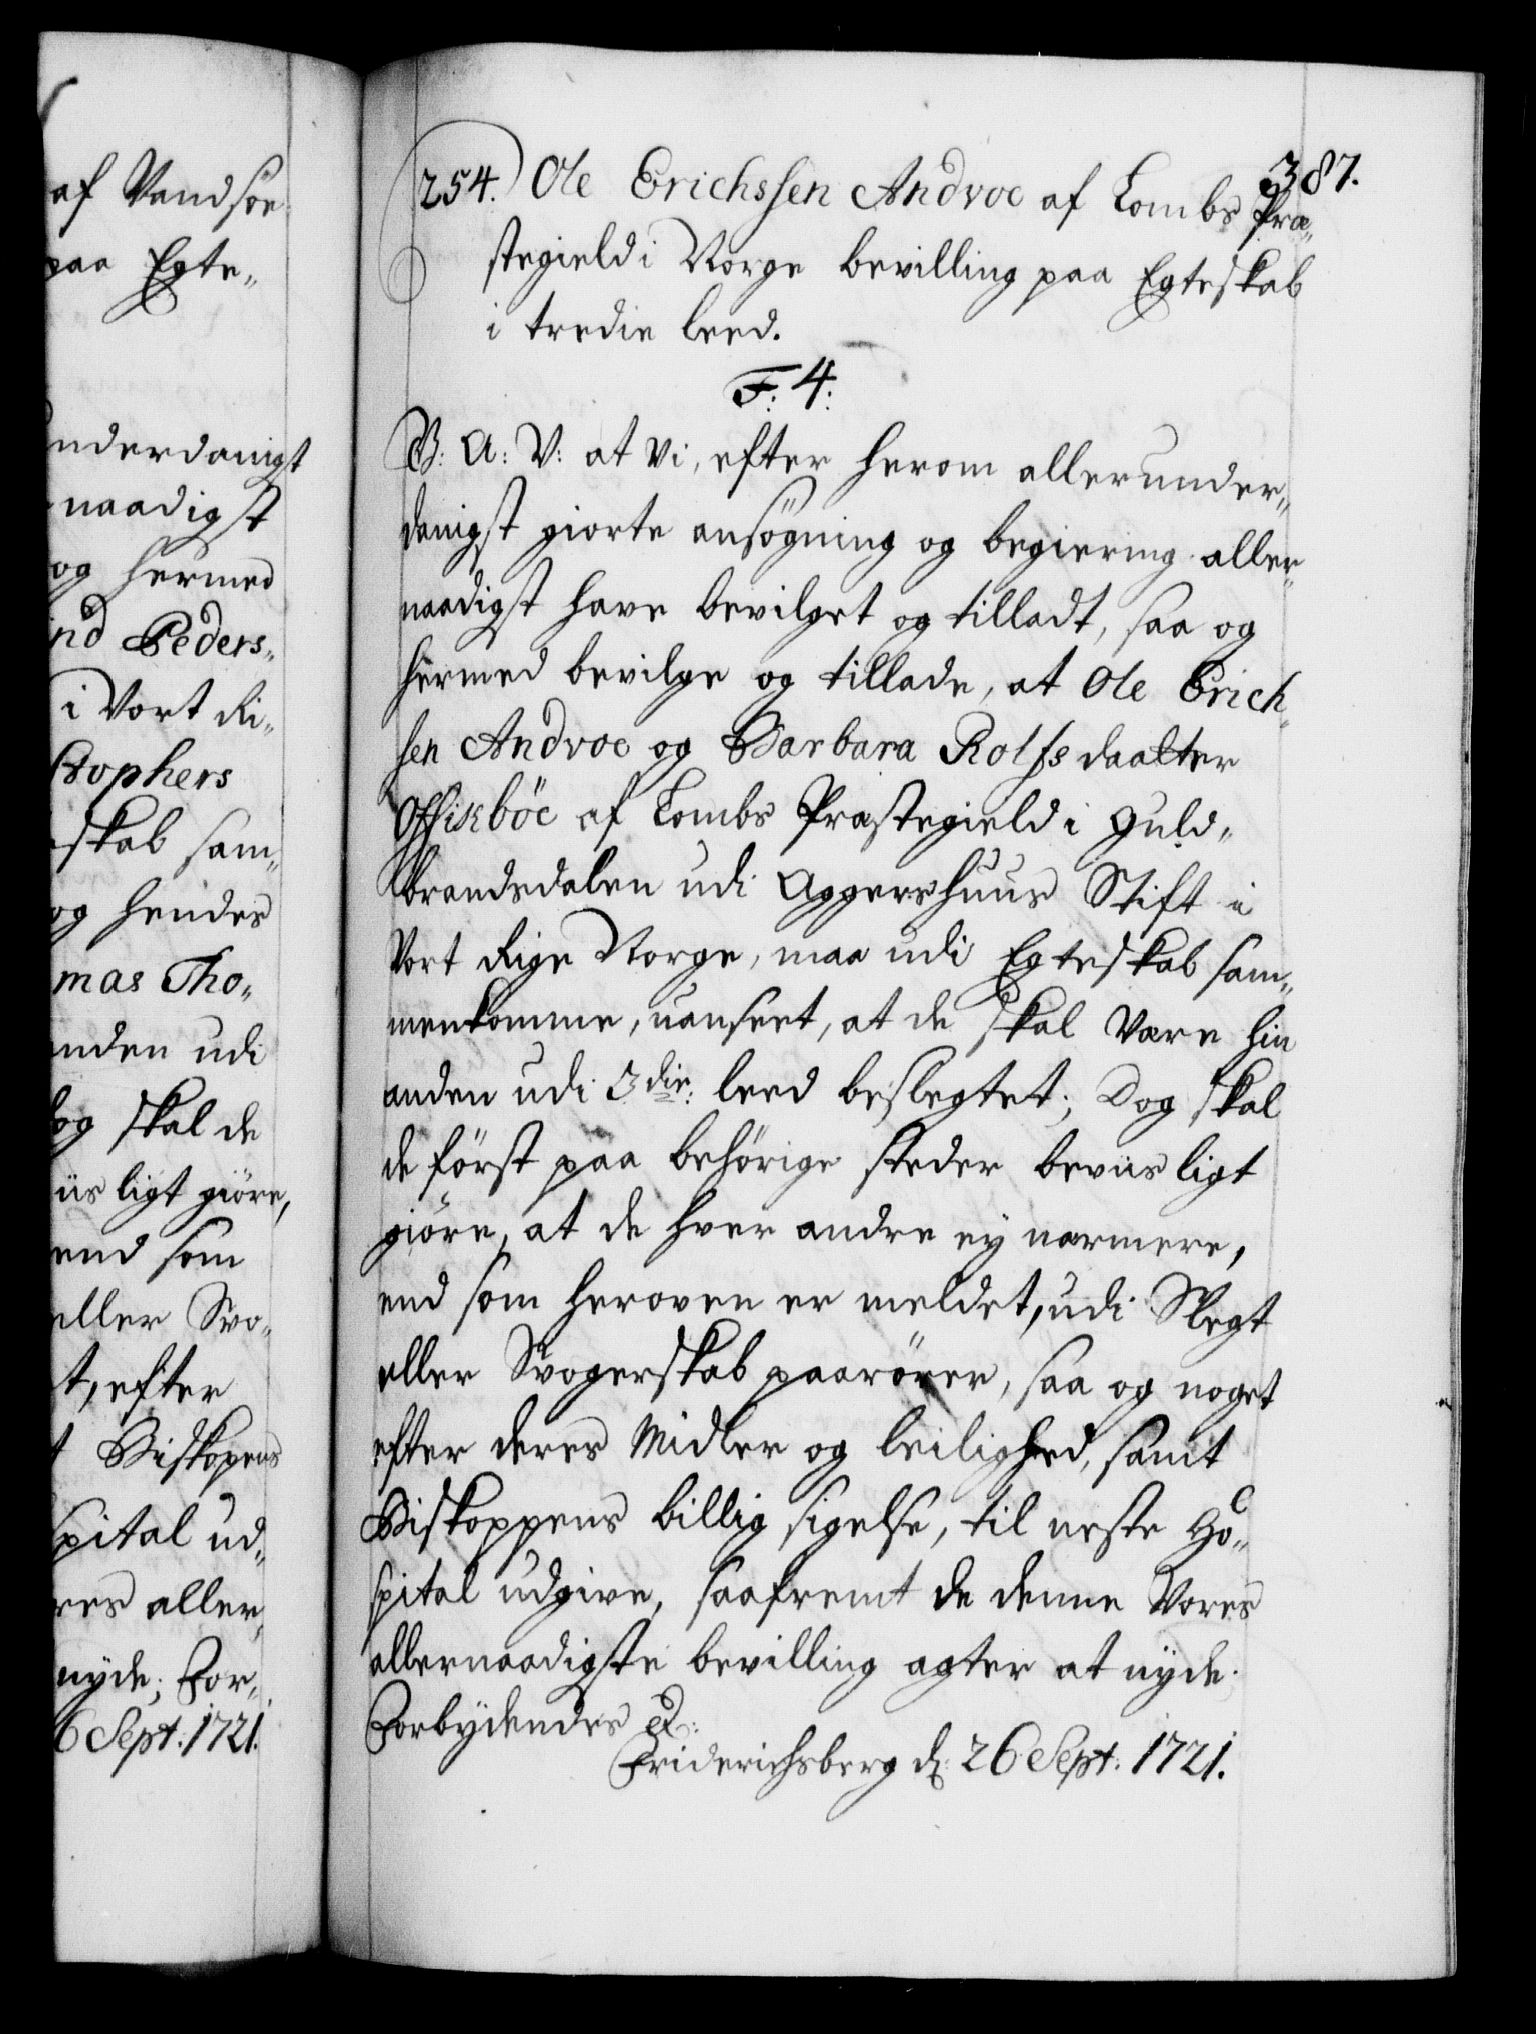 af Vandsøe
paa Egte„
underdanigst
naadigst
og hermed
ind Peders„
i Vort Ri„
stophers
skab sam„
og hendes
mas Tho„
anden udi
dog skal de
iisligt giøre,
end som
eller Svo„
t, efter
t Biskopens
spital ud„
res aller„
nyde; For„
6 Sept: 1721.
387.
254. Ole Erichssen Andvoe af Lombs Præ„
stegield i Norge bevilling paa Egteskab
i tredie leed.
F: 4:
G: A: V: at Vi, efter herom allerunder„
danigst giorte ansøgning og begiering aller„
naadigst have bevilget og tilladt, saa og
hermed bevilge og tillade, at Ole Erich„
sen Andvoe og Barbara Rolfsdaatter
Offisbøe af Lombs Præstegield i Guld„
brandsdalen udi Aggershuus Stift i
Vort Rige Norge, maa udi Egteskab sam„
menkomme, uanseet, at de skal være hin
anden udi 3die: leed beslegtet; Dog skal
de først paa behørige steder beviisligt
giøre, at de hver andre ey nærmere,
end som heroven er meldet, udi Slegt
eller Svogerskab paarører, saa og noget
efter deres Midler og leilighed, samt
Biskoppens billig sigelse, til neste Ho„
spital udgive, saafremt de denne Vores
allernaadigste bevilling agter at nyde.
Forbydendes &:
Friderichsberg d: 26 Sept: 1721.